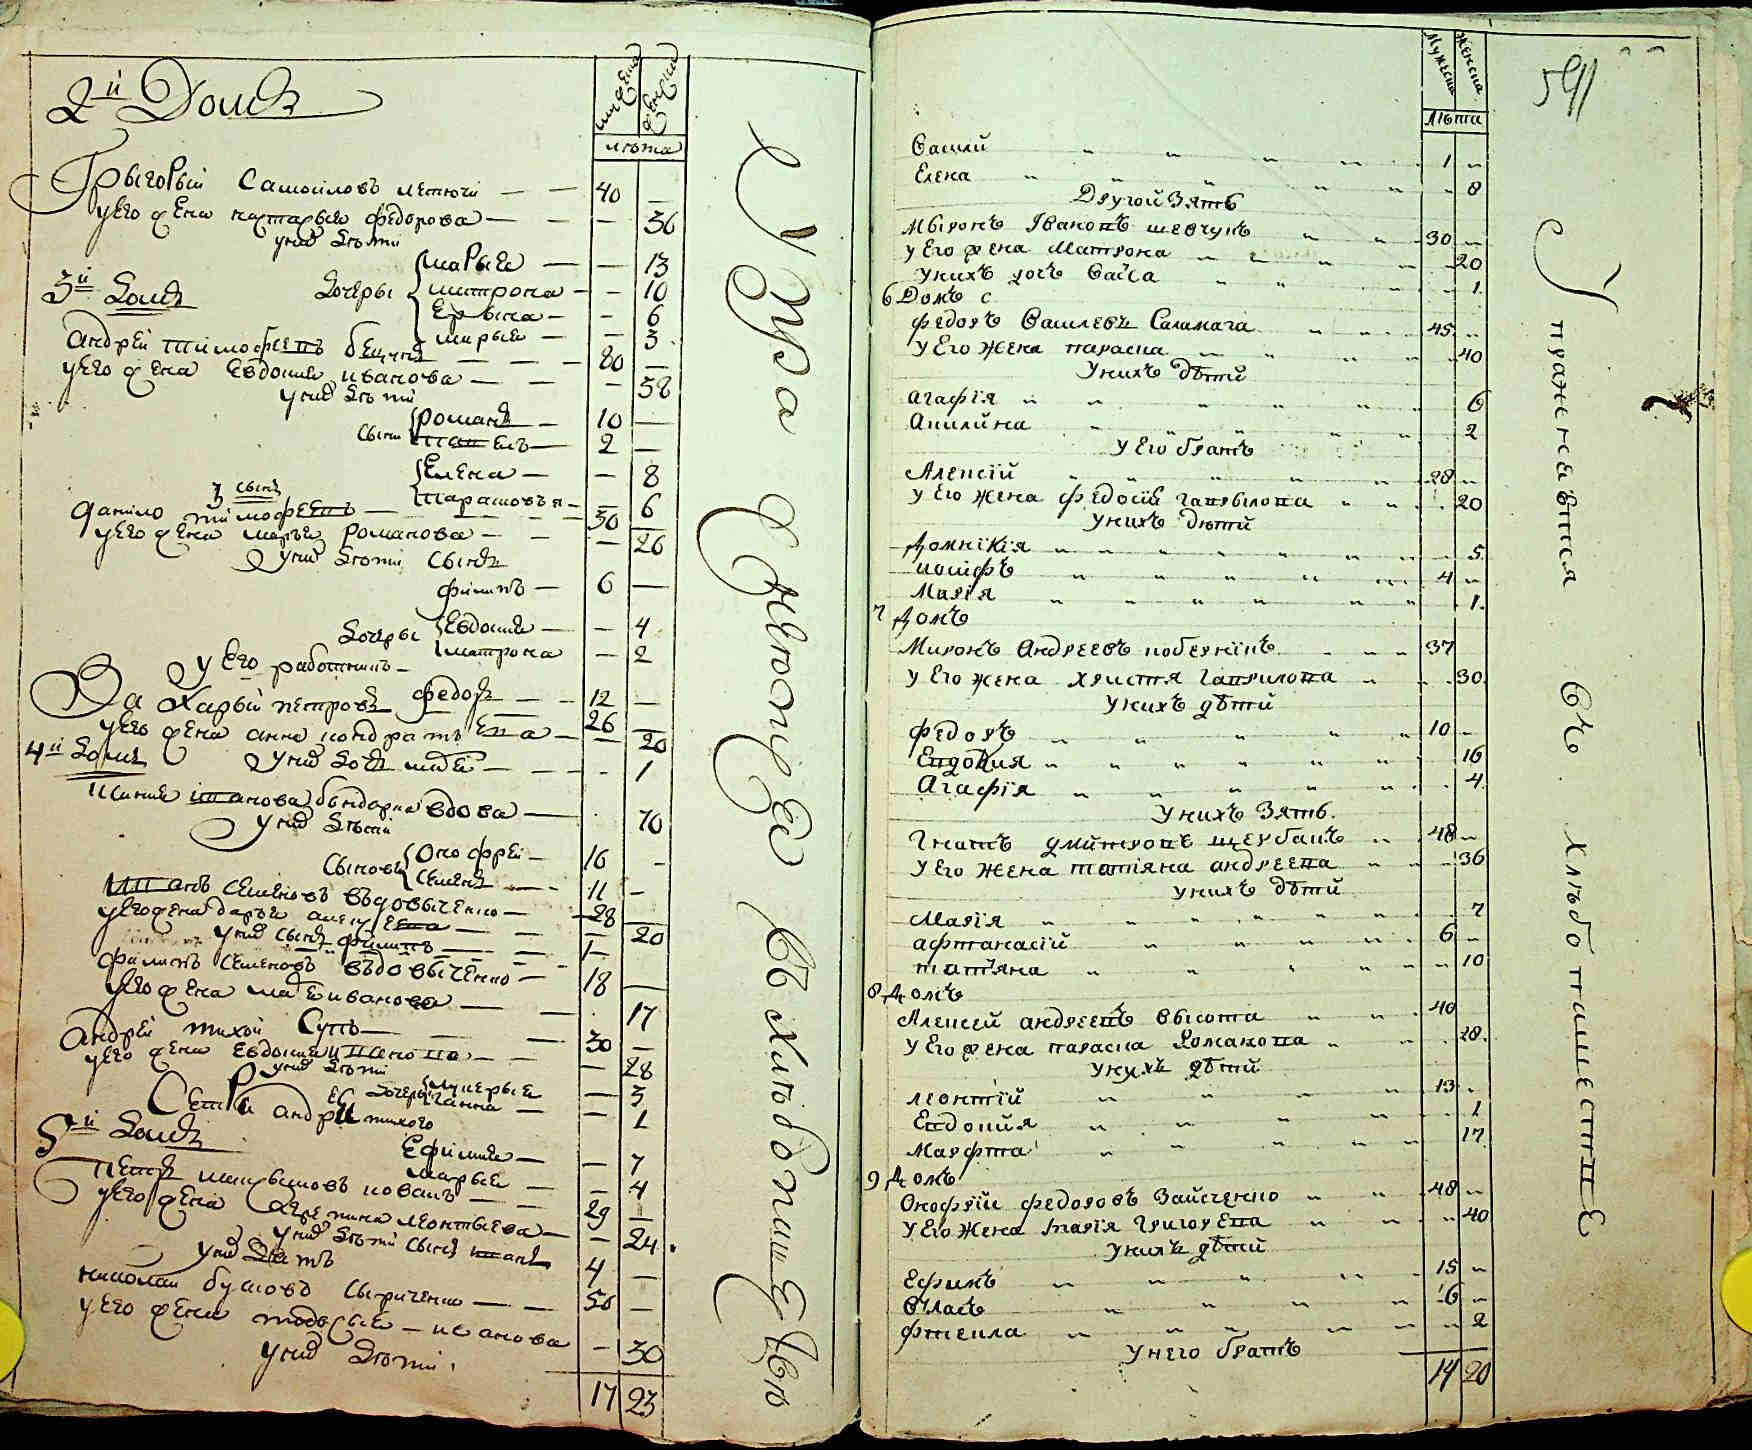 мужеска женска
лѣта
2й Домъ
Грыгорый Самойловъ летючи — — 40 —
у Его жена настасыя федорова — — — 36
у нихъ дѣти
дочеры марыя — — 13
мотрона — — 10
Ерына — — 6
марыя — — 3
3й домъ
андрей тимофеевъ — — — 80 —
у Его жена Евдокия иванова — — — 58
у нихъ дѣти
сыны романъ — 10 —
2 —
Елена — — 8
парасковъя — — 6
3 сынъ
данило тимофеевъ — — — 30 —
у Его жена марья романова — — — 26
у нихъ дѣти сынъ
филипъ — 6 —
дочеры Евдокия — — 4
матрона — 2
у Его работникъ —
федоръ — — 12 —
Захарый петровъ 26 —
у Его жена анна кондратьева — — 20
у нихъ дочь — — — 1
4й домъ
иванова бондарка вдова — 70
у нихъ дѣти
Сыновъ Онофрей — 16 -
Семенъ — — 11 —
иванъ Семеновъ вдовыченко — 28 —
у Его жена дарья алексеева — — — 20
у нихъ сынъ филипъ — — — 1 —
филипъ Семеновъ вдовыченко — 18 —
у Его жена иванова — — 17
андрей тихой Супъ — — 30 —
у Его жена Евдокия — — — 28
у нихъ дѣти
дочеры — 3
ганна — — 1
Сестры андрея тихого
Ефимия — — 7
марья — — 4
5й домъ
петръ мартыновъ коваль — — 29 —
у Его жена леонтьева — — 24
у нихъ дѣти сынъ иванъ 4 —
у нихъ зять
николай сыриченко — — 50 —
у Его жена иванова — 30
у нихъ дѣти
17 23
Упражняюцся въ хлѣбопашествѣ
мужеска женска
лѣта
591
Василй 1
Елена 8
Другой Зять
Мыронъ Ивановъ шевчукъ 30
у Его жена Матрона 20
Унихъ дочь Васса 1
6 Домъ
Федоръ Василевъ Саламаха 45
у Его жена параска 40
Унихъ дѣти
Агафiя 6
Акилина 2
у Его братъ
Алексiй 28
у Его жена федосiя гаврылова 20
Унихъ дѣти
Домнiкiя 5
иосифъ 4
Марiя 1
7 Домъ
Миронъ Андреевъ 37
у Его жена христя гаврилова 30
Унихъ дѣти
Федоръ 10
Евдокия 16
Агафiя 4
Унихъ Зять
Гнатъ дмитровъ щербакъ 48
у Его жена татiяна андреева 36
унихъ дѣти
Марiя 7
афтанасiй 6
татiяна 10
8 Домъ
Алексей андреевъ высота 40
у Его жена параска романова 28
унихъ дѣтй
леонтiй 13
Евдокия 1
Марфта 17
9 Домъ
Онофрiй федоровъ Зайченко 48
у Его жена марiя григорева 40
унихъ дѣтй
Ефимъ 15
Влась 6
Фтекла 2
унего братъ
14 20
Упражняютсся въ хлѣбопашествѣ